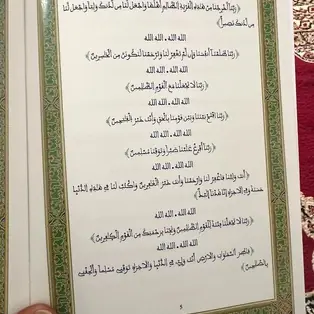 ﴿رَبَّنَا أَخْرِجْنَا مِنْ هَٰذِهِ الْقَرْيَةِ الظَّالِمِ أَهْلُهَا وَاجْعَل لَّنَا مِن لَّدُنكَ وَلِيًّا وَاجْعَل لَّنَا
مِن لَّدُنكَ نَصِيرًا﴾
الله الله ـ الله الله
﴿رَبَّنَا ظَلَمْنَا أَنفُسَنَا وَإِن لَّمْ تَغْفِرْ لَنَا وَتَرْحَمْنَا لَنَكُونَنَّ مِنَ الْخَاسِرِينَ﴾
الله الله ـ الله الله
﴿رَبَّنَا لَا تَجْعَلْنَا مَعَ الْقَوْمِ الظَّالِمِينَ﴾
الله الله ـ الله الله
﴿رَبَّنَا افْتَحْ بَيْنَنَا وَبَيْنَ قَوْمِنَا بِالْحَقِّ وَأَنتَ خَيْرُ الْفَاتِحِينَ﴾
الله الله ـ الله الله
﴿رَبَّنَا أَفْرِغْ عَلَيْنَا صَبْرًا وَتَوَفَّنَا مُسْلِمِينَ﴾
الله الله ـ الله الله
﴿أَنتَ وَلِيُّنَا فَاغْفِرْ لَنَا وَارْحَمْنَا وَأَنتَ خَيْرُ الْغَافِرِينَ وَاكْتُبْ لَنَا فِي هَٰذِهِ الدُّنْيَا
حَسَنَةً وَفِي الْآخِرَةِ إِنَّا هُدْنَا إِلَيْكَ﴾
الله الله ـ الله الله
﴿رَبَّنَا لَا تَجْعَلْنَا فِتْنَةً لِّلْقَوْمِ الظَّالِمِينَ وَنَجِّنَا بِرَحْمَتِكَ مِنَ الْقَوْمِ الْكَافِرِينَ﴾
الله الله ـ الله الله
﴿فَاطِرَ السَّمَاوَاتِ وَالْأَرْضِ أَنتَ وَلِيِّي فِي الدُّنْيَا وَالْآخِرَةِ تَوَفَّنِي مُسْلِمًا وَأَلْحِقْنِي
بِالصَّالِحِينَ﴾
5